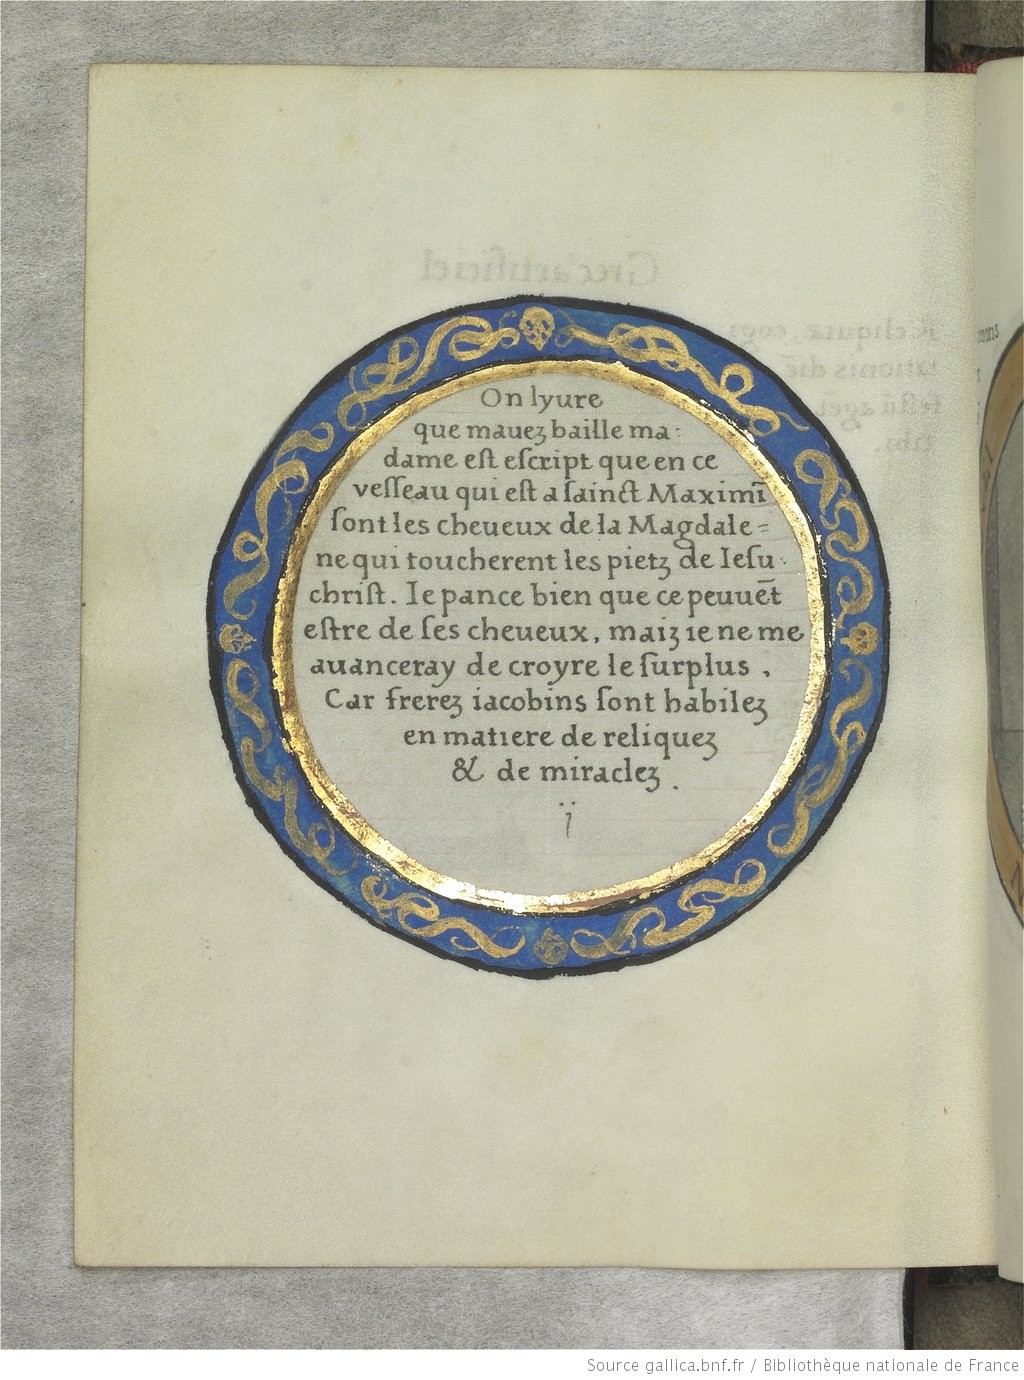 On lyure
que mauez baille ma-
dame est escript que en ce
vesseau qui est a sainct Maximī
sont les cheueux de la Magdale=
ne qui toucherent les pietz de Iesu-
christ. Ie pance bien que ce peuuēt
estre de ses cheueux, maiz ie ne me
auanceray de croyre le surplus.
Car frerez iacobins sont habilez
en matiere de reliquez
& de miraclez.
ij
Grec artificiel
mons
Source gallica.bnf.fr / Bibliothèque nationale de France